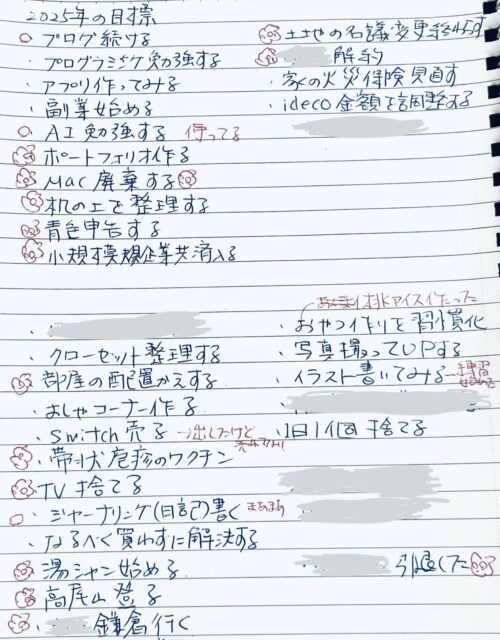 2025年の目標
ブログ続ける
プログラミング勉強する
アプリ作ってみる
副業始める
AI勉強する 使ってる
ポートフォリオ作る
Mac廃棄する
机の上を整理する
青色申告する
小規模企業共済入る
土地の名義変更終わらす
解約
家の火災保険見直す
ideco金額を調整する
クローゼット整理する
部屋の配置かえする
おしゃコーナー作る
Switch売る →出したけど
売れない
帯状疱疹のワクチン
TV捨てる
ジャーナリング(日記)書く まあまあ
なるべく買わずに解決する
湯シャン始める
高尾山登る
鎌倉行く
アイス作った
おやつ作りを習慣化
写真撮ってUPする
イラスト書いてみる 練習
始めた
1日1個捨てる
引退した